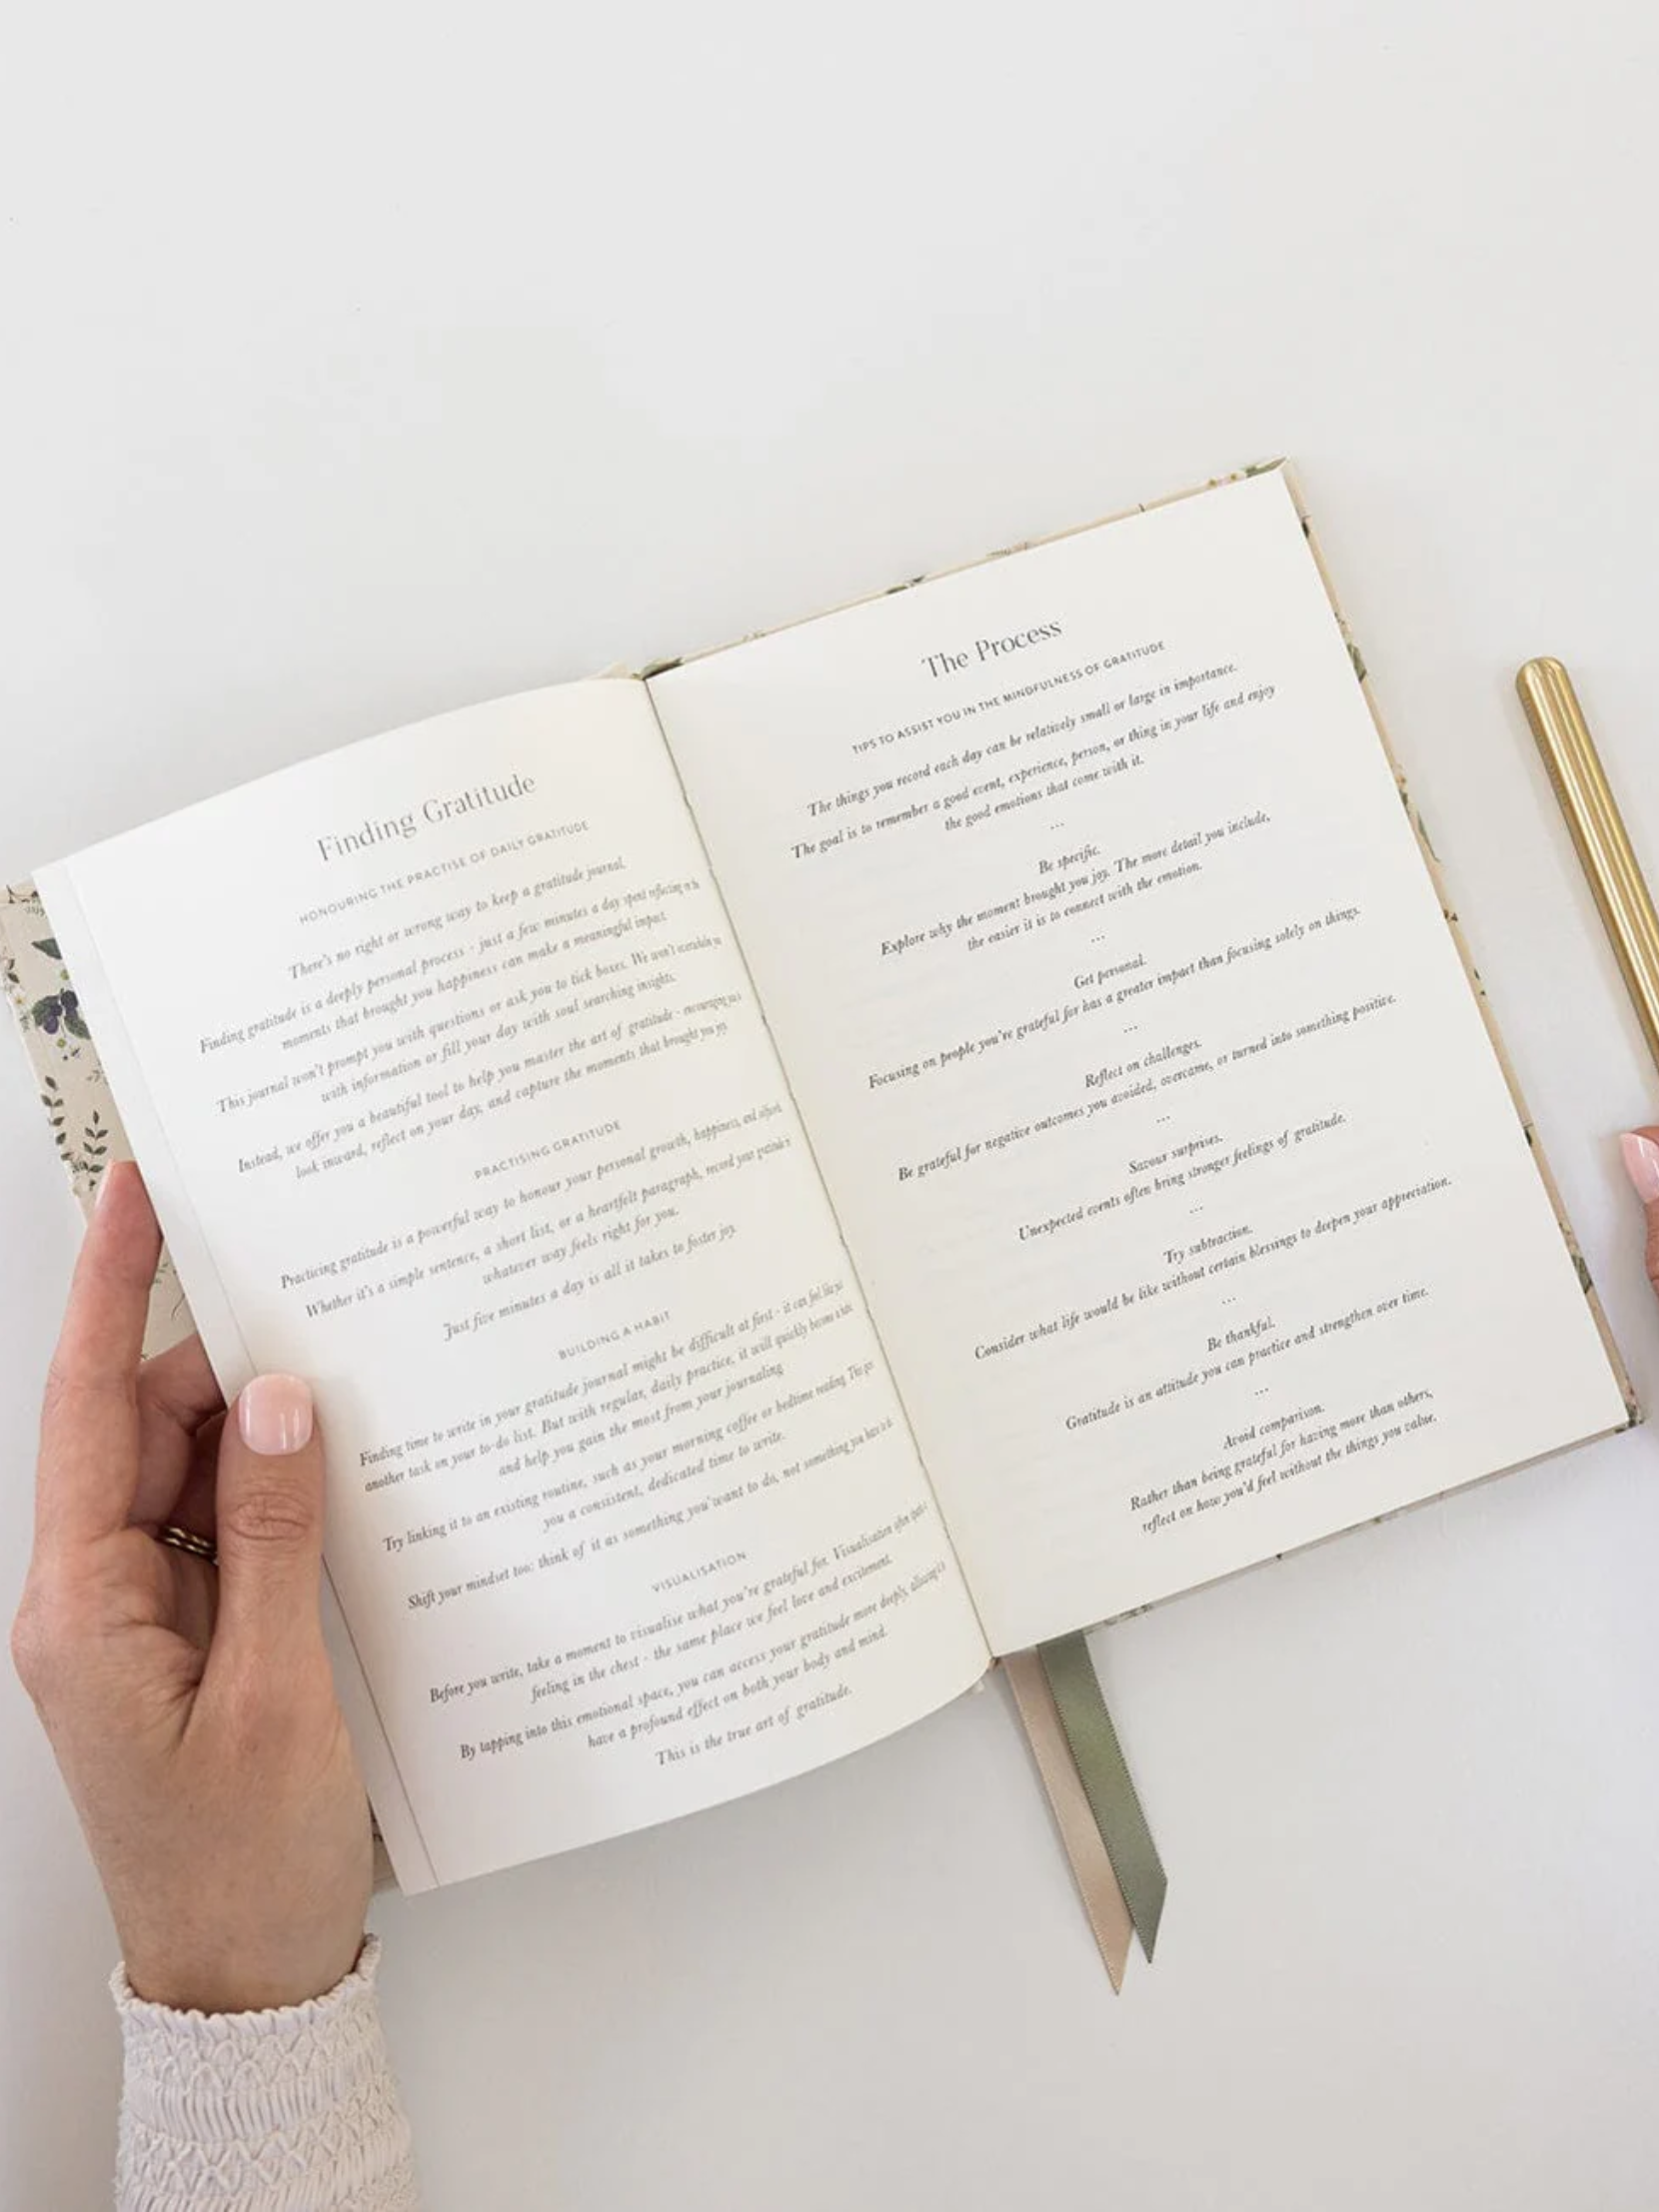 Finding Gratitude
HONOURING THE PRACTISE OF DAILY GRATITUDE
There's no right or wrong way to keep a gratitude journal.
Finding gratitude is a deeply personal process - just a few minutes a day spent reflecting on the
moments that brought you happiness can make a meaningful impact.
This journal won't prompt you with questions or ask you to tick boxes. We won't overwhelm you
with information or fill your day with soul searching insights.
Instead, we offer you a beautiful tool to help you master the art of gratitude - encouraging you to
look inward, reflect on your day, and capture the moments that brought you joy.
PRACTISING GRATITUDE
Practicing gratitude is a powerful way to honour your personal growth, happiness, and
Whether it's a simple sentence, a short list, or a heartfelt paragraph, record your gratitude in
whatever way feels right for you.
Just five minutes a day is all it takes to foster joy.
BUILDING A HABIT
Finding time to write in your gratitude journal might be difficult at first - it can feel like yet
another task on your to-do list. But with regular, daily practice, it will quickly become a habit
and help you gain the most from your journaling.
Try linking it to an existing routine, such as your morning coffee or bedtime reading. This gives
you a consistent, dedicated time to write.
Shift your mindset too: think of it as something you want to do, not something you have to do.
VISUALISATION
Before you write, take a moment to visualise what you're grateful for. Visualisation often
feeling in the chest - the same place we feel love and excitement.
By tapping into this emotional space, you can access your gratitude more deeply, allowing it to
have a profound effect on both your body and mind.
This is the true art of gratitude.
The Process
TIPS TO ASSIST YOU IN THE MINDFULNESS OF GRATITUDE
The things you record each day can be relatively small or large in importance.
The goal is to remember a good event, experience, person, or thing in your life and enjoy
the good emotions that come with it.
...
Be specific.
Explore why the moment brought you joy. The more detail you include,
the easier it is to connect with the emotion.
...
Get personal.
Focusing on people you're grateful for has a greater impact than focusing solely on things.
...
Reflect on challenges.
Be grateful for negative outcomes you avoided, overcame, or turned into something positive.
...
Savour surprises.
Unexpected events often bring stronger feelings of gratitude.
...
Try subtraction.
Consider what life would be like without certain blessings to deepen your appreciation.
...
Be thankful.
Gratitude is an attitude you can practice and strengthen over time.
...
Avoid comparison.
Rather than being grateful for having more than others,
reflect on how you'd feel without the things you value.